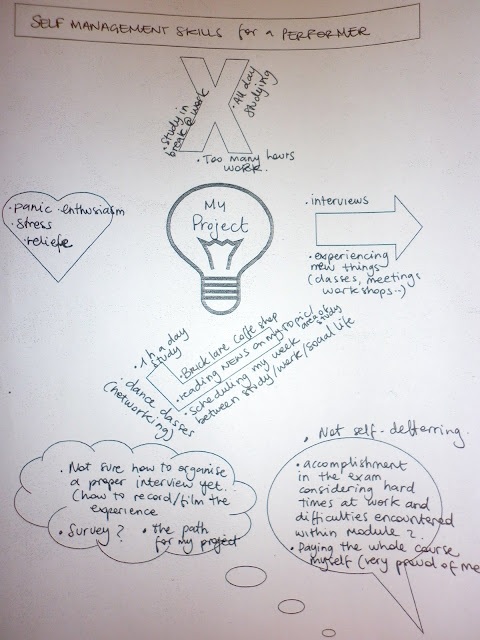 SELF MANAGEMENT SKILLS for a PERFORMER
. Study in
break @ work
. All day
studying
. Too many hours
work.
. panic . enthusiasm
. stress
. reliefe
My
Project
. interviews
. experiencing
new things
(classes, meetings
workshops..)
. 1 h a day
study
. dance classes
(networking)
. Bricklane coffe shop
. reading NEWS on my topic/
area of
study
. scheduling my week
between study/work/social life
. Not sure how to organise
a proper interview yet
(how to record/film the
experience
. Survey?
. the path
for my project
. Not self-deferring.
. accomplishment
in the exam
considering hard
times at work and
difficulties encountered
within Module 2.
. Paying the whole course
myself (very proud of me